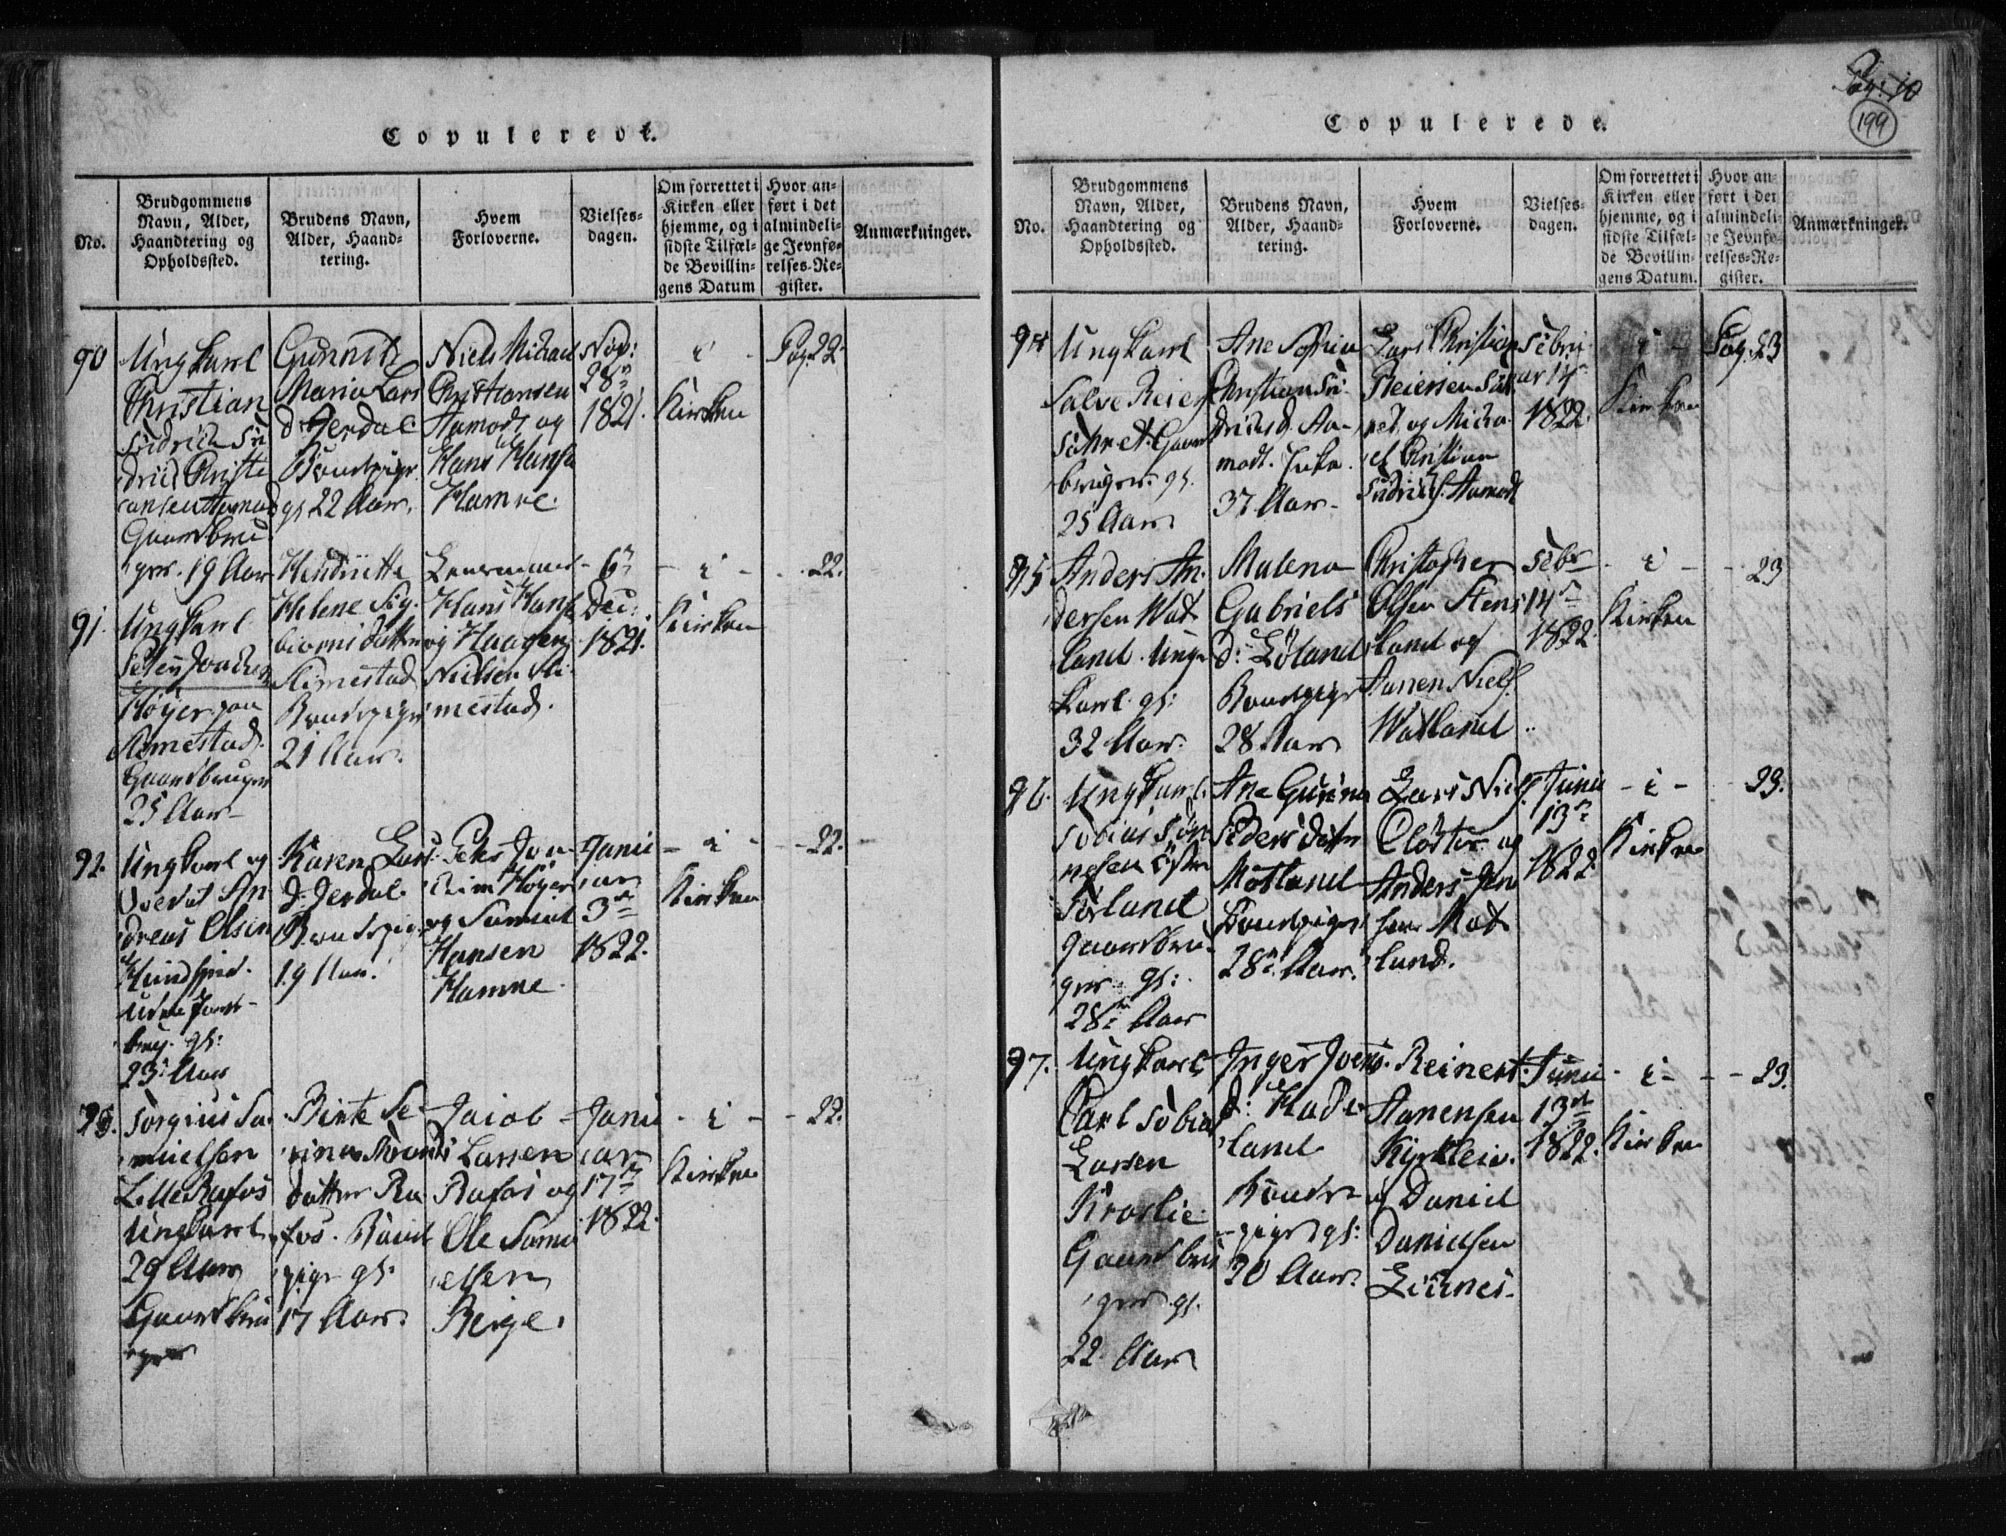 Pag: 10
199
Copulerede.
No.
Brudgommens
Navn, Alder,
Haandtering og
Opholdssted.
Brudens Navn,
Alder, Haand-
tering.
Hvem
Forloverne.
Vielses-
dagen.
Om forrettet i
Kirken eller
hjemme, og i
sidste Tilfæl-
de Bevillin-
gens Datum
Hvor an-
ført i det
almindeli-
ge Jevnfø-
relses-Re-
gister.
Anmærkninger.
90
Ungkarl
Christian
Fridrich Fri
drichs Christi
ansen Aamod
Gaardbru
ger. 19 Aar
Gunnild
Maria Lars
d. Jerdal.
Bondepige
gl 22 Aar.
Niels Michael
Christiansen
Aamodt og
Hans Hansen
Hamre.
Nov:
28n
1821.
i
Kirken
Pag. 22.
91.
Ungkarl
Peter Joachim
Höyer paa
Rimestad.
Gaardbruger
25 Aar
Hendriette
Helene Sig.
biörns datter
Rimestad
Bondepige
21 Aar.
Lensmand
Hans Hans
og Haagen
Nielsen Ri
mestad.
6n
Dec:
1821.
i
Kirken
22.
92.
Ungkarl og
An
dreas Olsen
gl:
23 Aar
Karen Lars
d: Jerdal.
Bondepige
19 Aar.
Peter Joa
kim Höyer
og Samuel
Hansen
Hamre.
Janu
ar
3de
1822.
i
Kirken
22.
93.
Torgius Sa
muelsen
Lille Rafos
Ungkarl
29 Aar
Gaardbru
ger
Birte Se
rina
datter Ra
fos. Bonde
pige gl:
17 Aar.
Jacob
Larsen
Rafos og
Ole Samu
elsen
Berge.
Janu
ar
17n
1822.
i
Kirken
22.
Copulerede.
No.
Brudgommens
Navn, Alder,
Haandtering og
Opholdssted.
Brudens Navn,
Alder, Haand-
tering.
Hvem
Forloverne.
Vielses-
dagen.
Om forrettet i
Kirken eller
hjemme, og i
sidste Tilfæl-
de Bevillin-
gens Datum.
Hvor an-
ført i det
almindeli-
ge Jevnfø-
relses-Re-
gister.
Anmærkninger.
94
Ungkarl
Salve Reiers
Gaard
bruger. gl.
25 Aar
Ane Sophia
Christian Fri
drichs d. Aa
modt.
37 Aar
Lars Christian
Reiersen
og Micha
el Christian
Fridrichs. Aamodt
Febru
ar 14
1822.
i
Kirken
Pag. 23
95
Anders An
dersen Wat
land Unge
karl gl:
32 Aar.
Malena
Gabriels
d: Löland
Bondepige
28 Aar
Christopher
Olsen Stens
land og
Aanen Niels.
Watland
Febr
14n
1822.
i
Kirken
23
96.
Ungkarl
Tobias Tön
nesen Östre
Törland
Gaardbru
ger gl:
28 Aar
Ane Gurina
Peders datter
Motland
Bondepige
28 Aar.
Lars Niels.
Closter og
Anders Jen
sen Mot
land.
Junii
13n
1822
i
Kirken
23.
97.
Ungkarl
Carl Tobias
Larsen
Kraslie
Gaardbru
ger gl.
22 Aar
Inger Joens
d: Hade
land
Bonde
pige gl:
30 Aar.
Reinert
Aanensen
og Daniel
Danielsen
Junii
13de
1822.
i
Kirken
23.